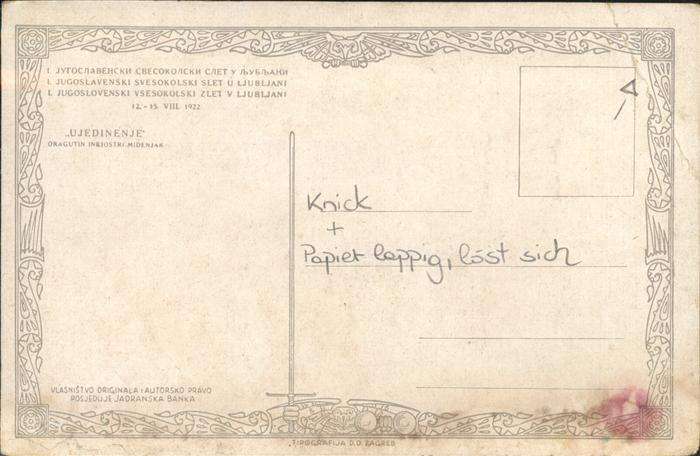 I. ЈУГОСЛАВЕНСКИ СВЕСОКОЛСКИ СЛЕТ У ЉУБЉАНИ
I. JUGOSLAVENSKI SVESOKOLSKI SLET U LJUBLJANI
I. JUGOSLOVENSKI VSESOKOLSKI ZLET V LJUBLJANI
12.-15. VIII. 1922
„UJEDINENJE"
DRAGUTIN INKIOSTRI MEDENJAK
Knick
+
Papier lappig, löst sich
VLASNIŠTVO ORIGINALA I AUTORSKO PRAVO
POSJEDUJE JADRANSKA BANKA
„TIPOGRAFIJA D.D. ZAGREB